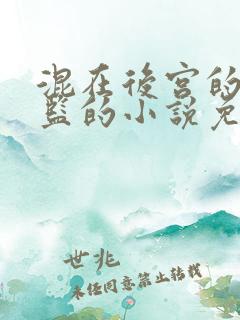 混在後宮的
監的小說免
世兆
未經同意禁止轉載